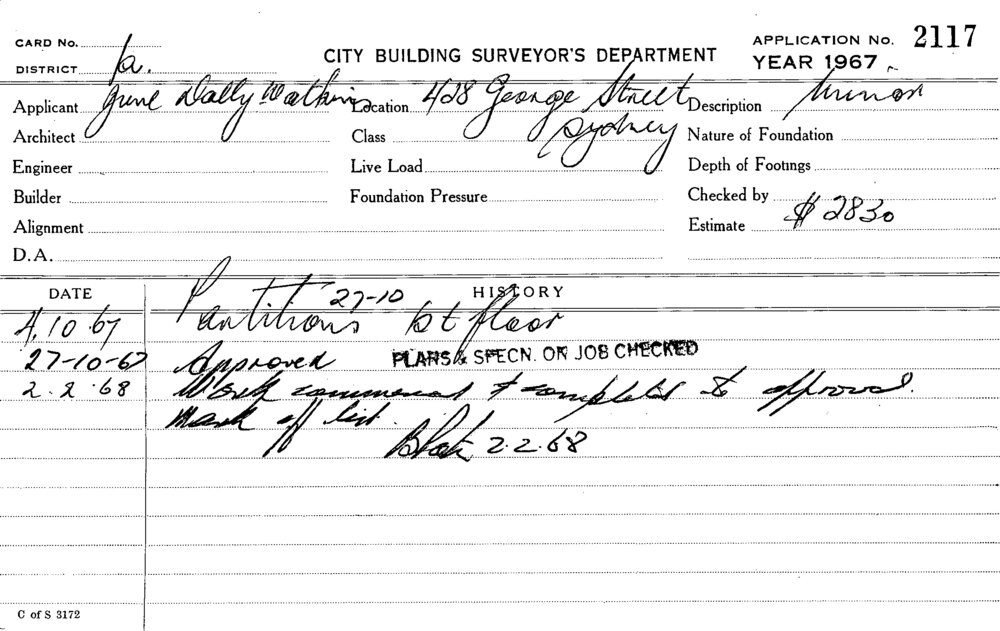 CARD No.
DISTRICT a.
CITY BUILDING SURVEYOR'S DEPARTMENT
APPLICATION No. 2117
YEAR 1967
Applicant June Dally Watkins Location 428 George Street Description Minor
Architect Class Sydney Nature of Foundation
Engineer Live Load Depth of Footings
Builder Foundation Pressure Checked by
Alignment Estimate $2830
D.A.
DATE HISTORY
27-10
4.10.67 Partitions 1st floor
27-10-67 Approved PLANS & SPECN. ON JOB CHECKED
2.2.68 Work commenced & completed to approval.
Mark off list.
2.2.68
C of S 3172